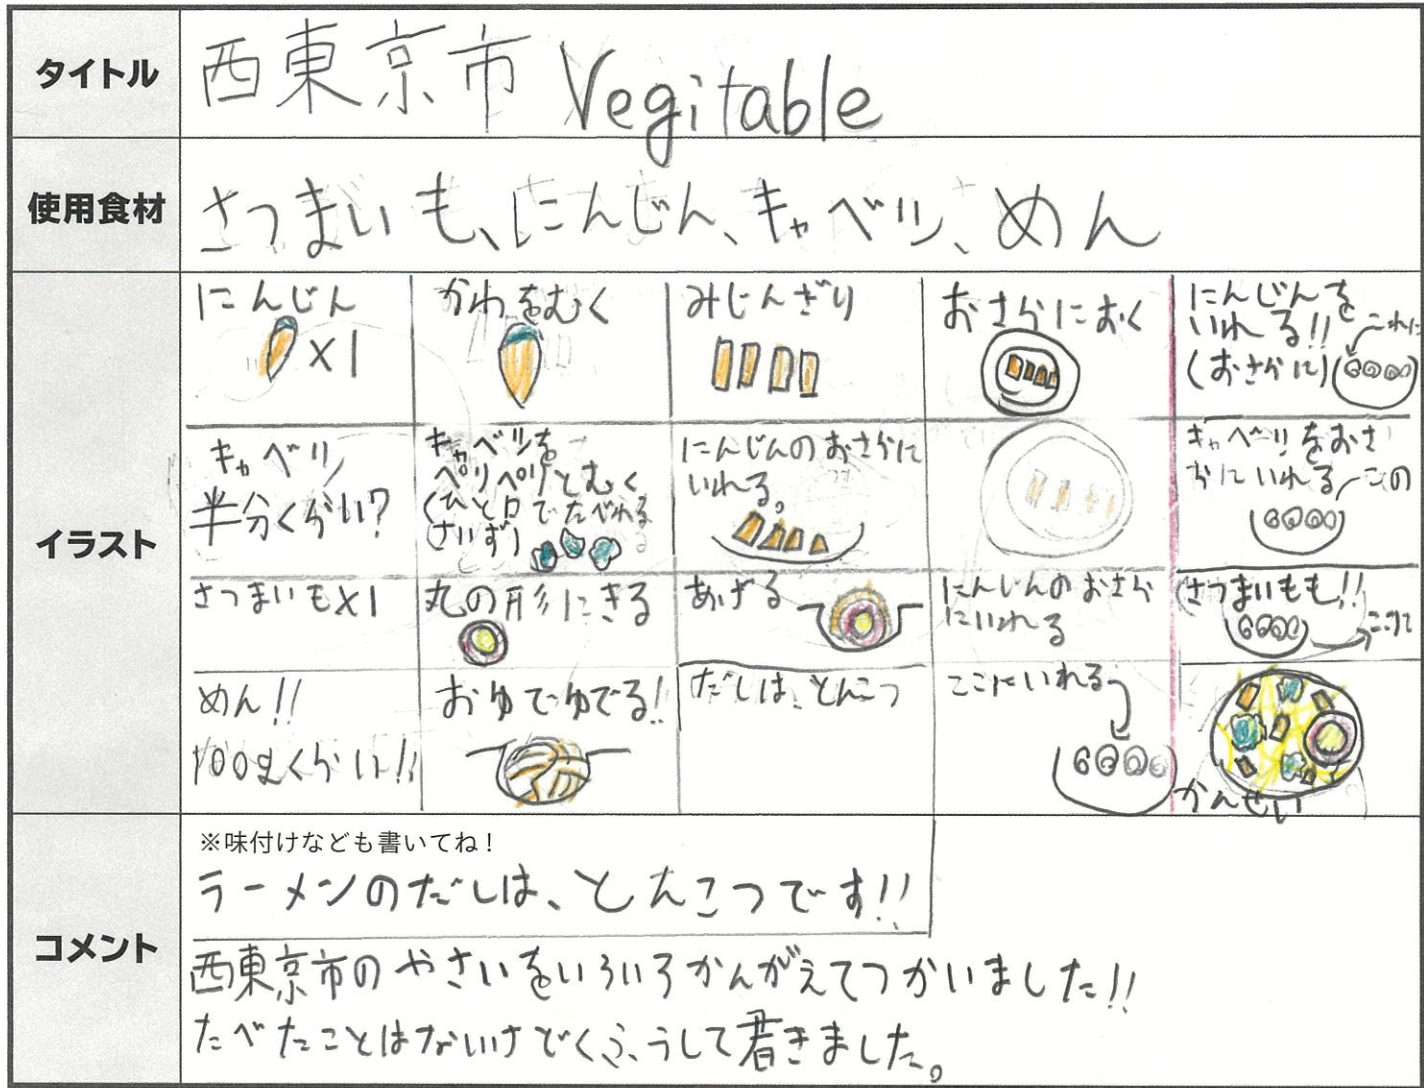 タイトル
西東京市 Vegitable
使用食材
さつまいも、にんじん、キャベツ、めん
イラスト
にんじん
×1
かわをむく
みじんぎり
おさらにおく
にんじんを
いれる!!
(おさらに)
これに
キャベツ
半分くらい?
キャベツを
ペリペリとむく
(ひと口でたべれる
さいず)
にんじんのおさらに
いれる。
キャベツをおさ
らにいれる
この
さつまいも×1
丸の形にきる
あげる
にんじんのおさら
にいれる
さつまいもも!!
ここに
めん!!
100まくらい!!
おゆでゆでる!!
だしは、とんこつ
ここにいれる
かんせい
コメント
※味付けなども書いてね!
ラーメンのだしは、とんこつです!!
西東京市のやさいをいろいろかんがえてつかいました!!
たべたことはないけどくふうして書きました。